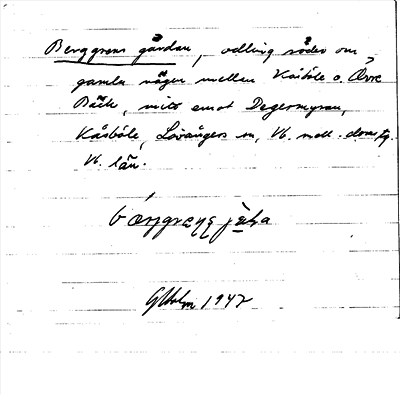 Berggrens gärdan, odling söder om
gamla vägen mellan Kåsböle o. Övre
Bäck, mitt emot Degermyran,
Kåsböle, Lövångers sn, Vb. mell. domsg.
Vb. län.
Gösta Holm 1947